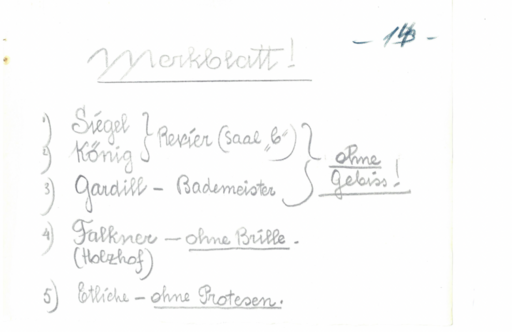 - 14 -
Merkblatt!
1) Siegel
2) König
Revier (Saal „6")
3) Gardill - Bademeister
ohne
Gebiss!
4) Falkner - ohne Brille.
(Holzhof)
5) Etliche - ohne Protesen.